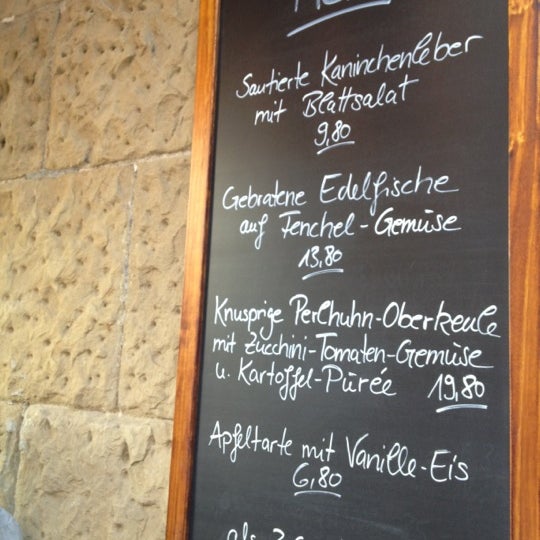 Sautierte Kaninchenleber
mit Blattsalat
9,80
Gebratene Edelfische
auf Fenchel-Gemüse
13,80
Knusprige Perlhuhn-Oberkeule
mit Zucchini-Tomaten-Gemüse
u. Kartoffel-Pürée 19,80
Apfeltarte mit Vanille-Eis
6,80
als 3